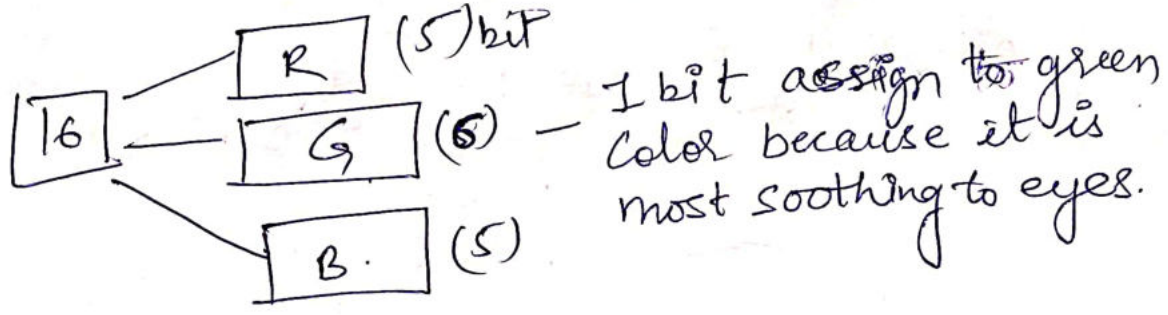 R (5) bit
16
G (6) – 1 bit assign to green
color because it is
most soothing to eyes.
B. (5)